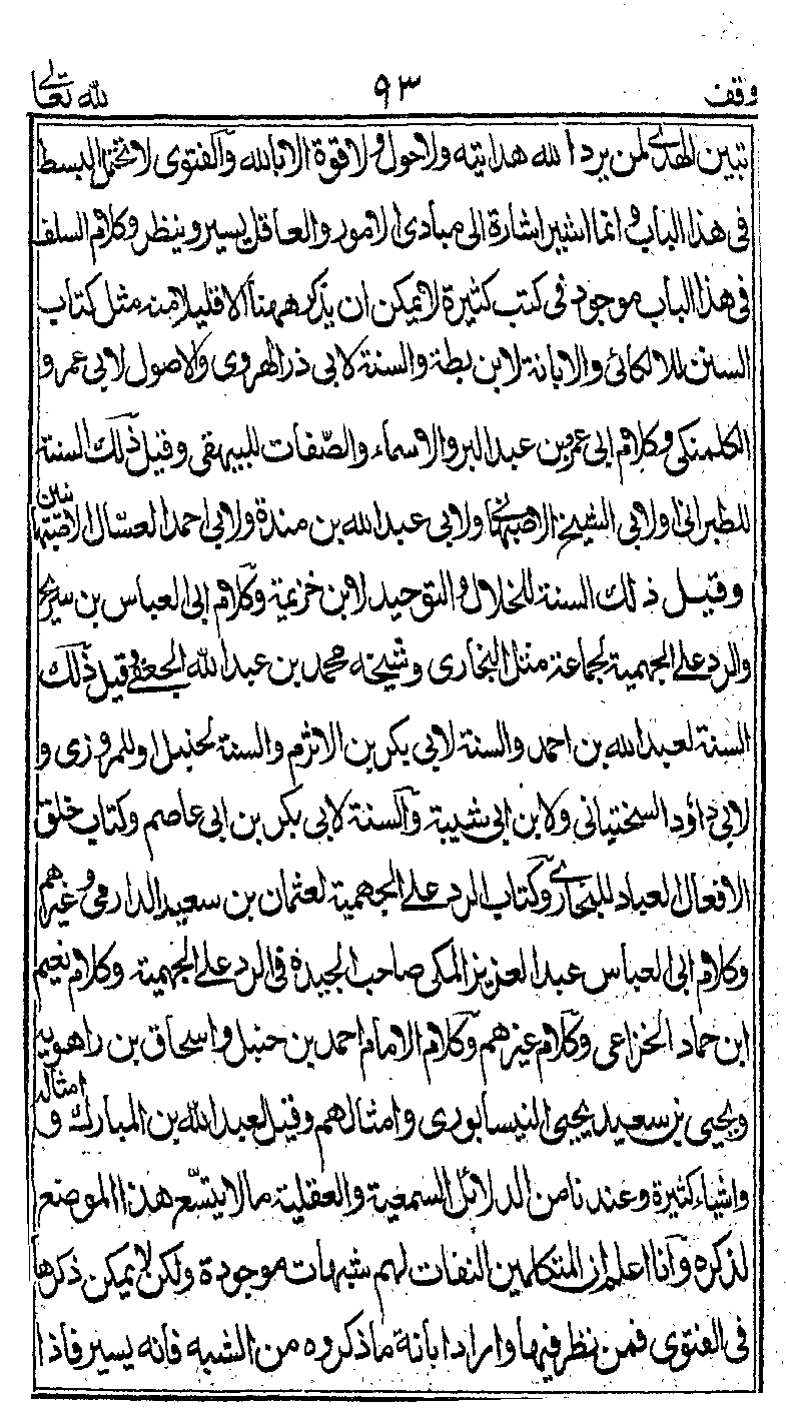 وقف ٩٣ لله تعالى
تبين الهدى لمن يرد الله هدايته ولاحول ولا قوة الا بالله والفتوى لا تحتمل البسط
فى هذا الباب وانما اشير اشارة الى مبادى الامور والعاقل يسير وينظر وكلام السلف
فى هذا الباب موجود فى كتب كثيرة لا يمكن ان يذكر ههنا الا قليلا منه مثل كتاب
السنن للالكائى والابانة لابن بطة والسنة لابى ذر الهروى والاصول لابى عمر و
الكلمنكى وكلام ابى عمر بن عبد البر والاسماء والصفات للبيهقى وقبل ذلك السنة
للطبرانى ولابى الشيخ الاصبهانى ولابى عبد الله بن مندة ولابى احمد العسال الاصبهانيين
وقبل ذلك السنة للخلال والتوحيد لابن خزيمة وكلام ابى العباس بن سريج
والرد على الجهمية لجماعة مثل البخارى وشيخه محمد بن عبد الله الجعفى وقبل ذلك
السنة لعبد الله بن احمد والسنة لابى بكر بن الاثرم والسنة لحنبل وللمروزى و
لابى داؤد السختيانى ولابن ابى شيبة والسنة لابى بكر بن ابى عاصم وكتاب خلق
الافعال العباد للبخارى وكتاب الرد على الجهمية لعثمان بن سعيد الدارمى وغيرهم
وكلام ابى العباس عبد العزيز المكى صاحب الجيدة فى الرد على الجهمية وكلام نعيم
ابن حماد الخزاعى وكلام غيرهم وكلام الامام احمد بن حنبل واسحاق بن راهويه
ويحيى بن سعيد يحيى النيسابورى وامثالهم وقبل لعبد الله بن المبارك و امثاله
واشياء كثيرة وعندنا من الدلائل السمعية والعقلية مالا يتسع هذا الموضع
لذكره وانا اعلم ان المتكلمين النفات لهم شبهات موجودة ولكن لا يمكن ذكرها
فى الفتوى فمن نظر فيها واراد ابانة ما ذكروه من الشبه فانه يسير فاذا